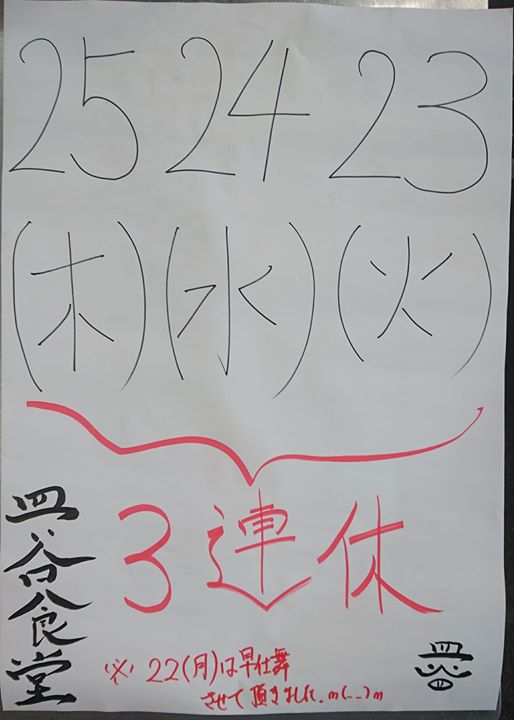 23 24 25
(火) (水) (木)
3連休
皿谷食堂
※ 22(月)は早仕舞
させて頂きました.m(_ _)m
皿